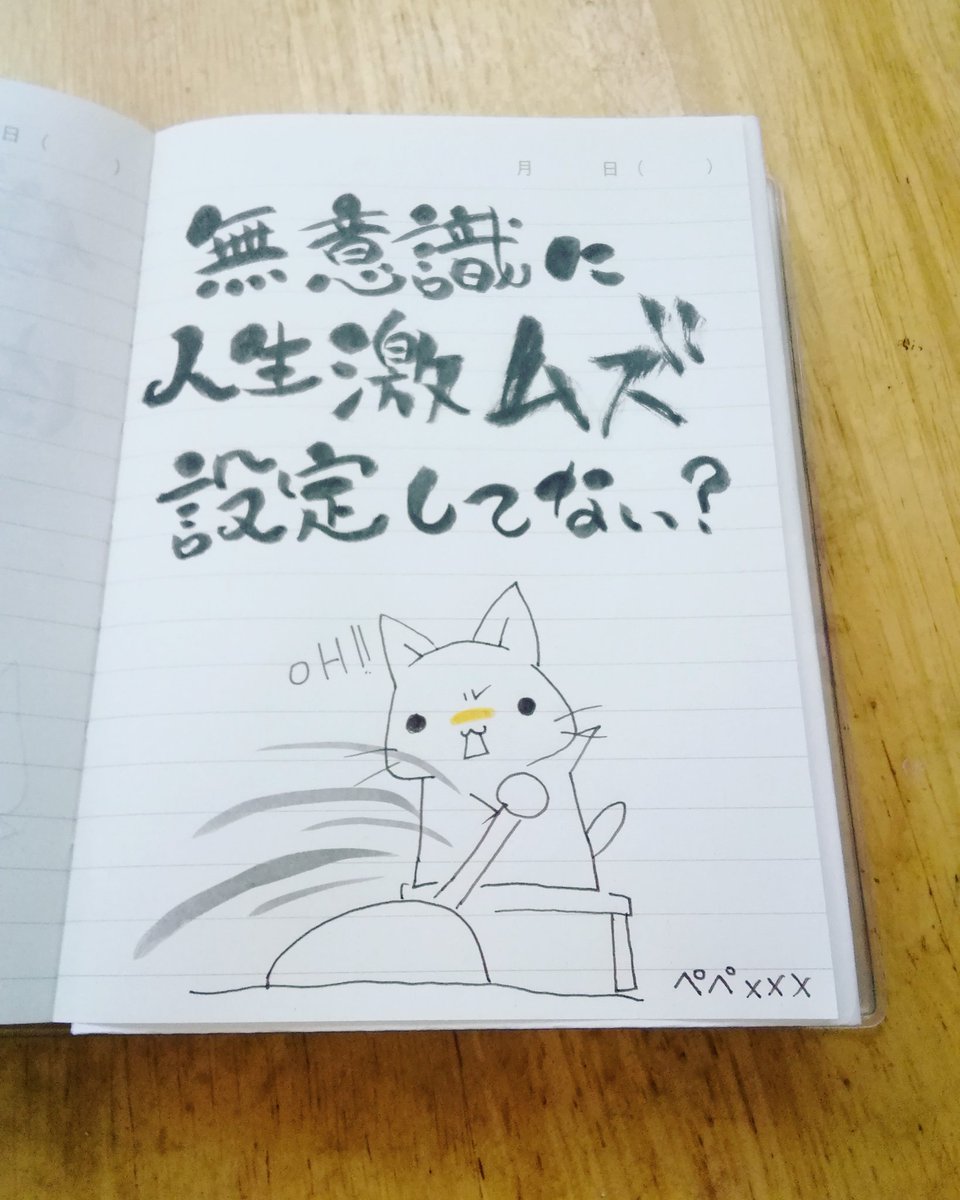 日（　　）
月　　日（　　）
無意識に
人生激ムズ
設定してない？
OH!!
ペペxxx